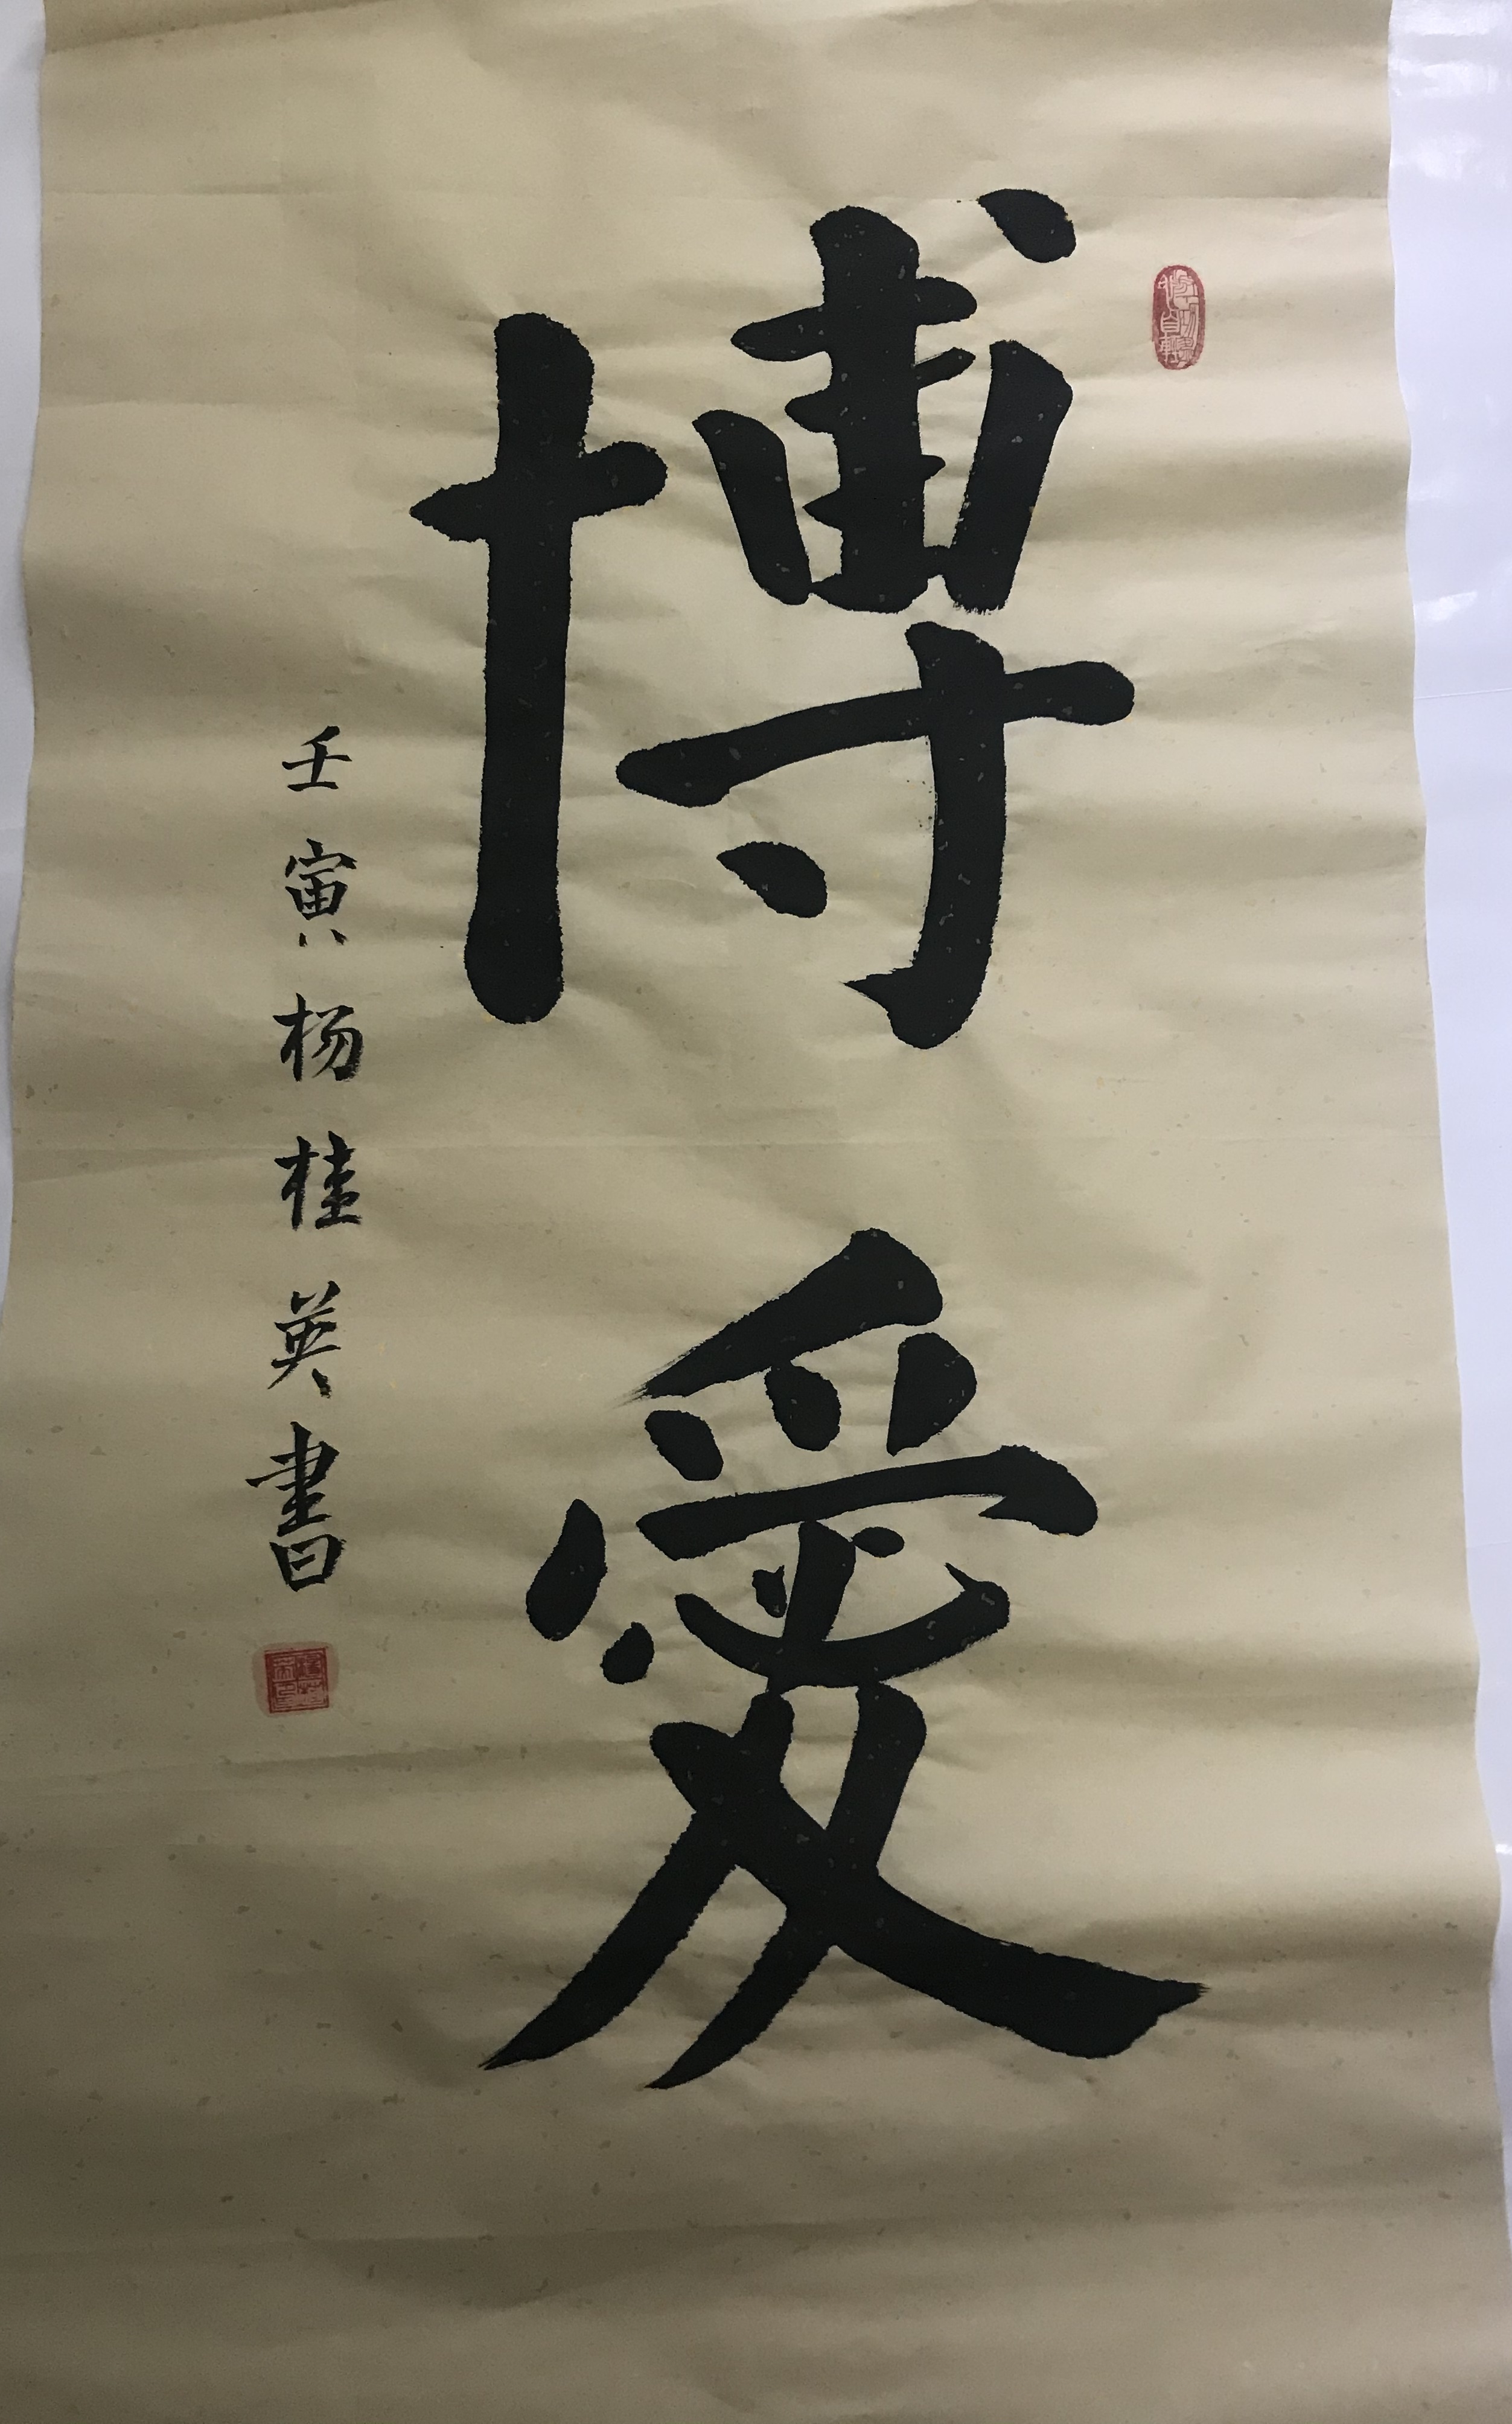 博愛
壬寅杨桂英書